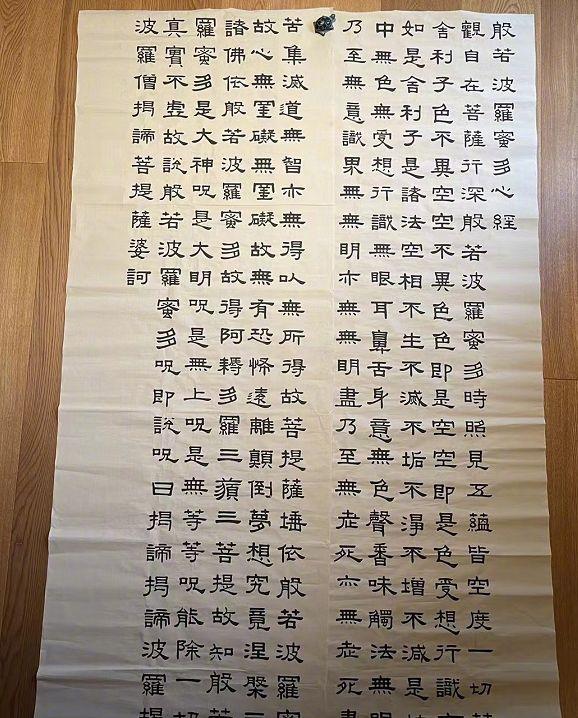 般若波羅蜜多心經
觀自在菩薩行深般若波羅蜜多時照見五蘊皆空度一切
舍利子色不異空空不異色色即是空空即是色受想行識
如是舍利子是諸法空相不生不滅不垢不淨不增不減
中無色無受想行識無眼耳鼻舌身意無色聲香味觸法無
乃至無意識界無無明亦無無明盡乃至無老死亦無老死
苦集滅道無智亦無得以無所得故菩提薩埵依般若波羅
故心無罣礙無罣礙故無有恐怖遠離顛倒夢想究竟涅槃
諸佛依般若波羅蜜多故得阿耨多羅三藐三菩提故知般
羅蜜多是大神咒是大明咒是無上咒是無等等咒能除一
真實不虛故說般若波羅蜜多咒即說咒曰揭諦揭諦波羅揭
波羅僧揭諦菩提薩婆訶